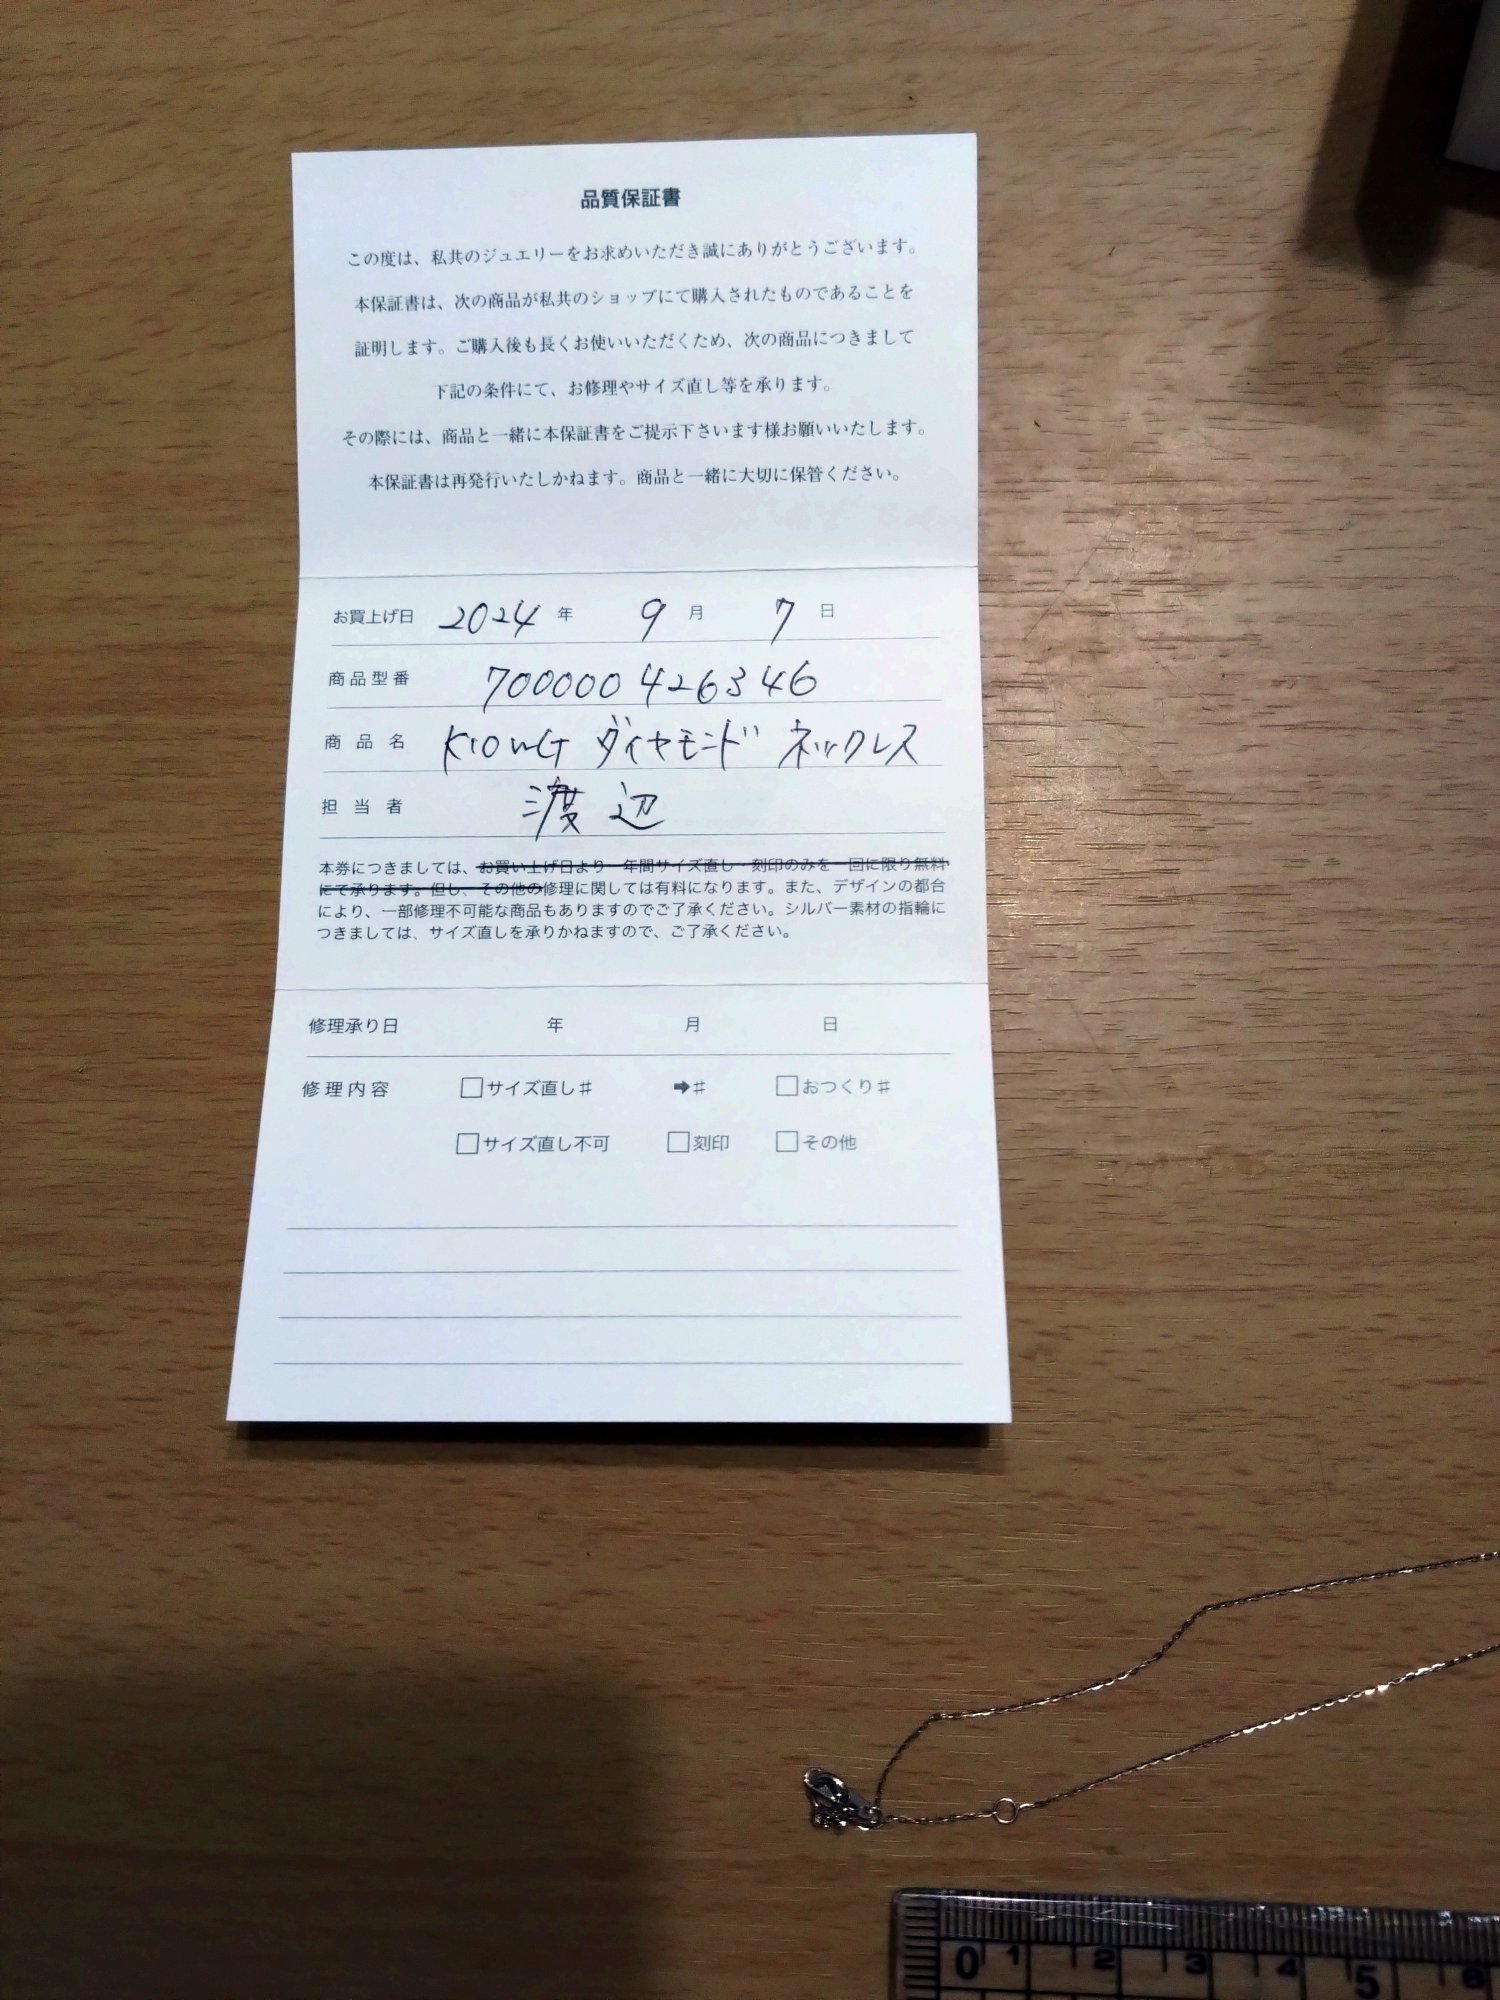 品質保証書
この度は、私共のジュエリーをお求めいただき誠にありがとうございます。
本保証書は、次の商品が私共のショップにて購入されたものであることを
証明します。ご購入後も長くお使いいただくため、次の商品につきまして
下記の条件にて、お修理やサイズ直し等を承ります。
その際には、商品と一緒に本保証書をご提示下さいます様お願いいたします。
本保証書は再発行いたしかねます。商品と一緒に大切に保管ください。
お買上げ日 2024 年 9 月 7 日
商品型番 700000426346
商品名 K10WG ダイヤモンド ネックレス
担当者 渡辺
本券につきましては、お買い上げ日より一年間サイズ直し・刻印のみを一回に限り無料
にて承ります。但し、その他の修理に関しては有料になります。また、デザインの都合
により、一部修理不可能な商品もありますのでご了承ください。シルバー素材の指輪に
つきましては、サイズ直しを承りかねますので、ご了承ください。
修理承り日 年 月 日
修理内容 □サイズ直し# ➡# □おつくり#
□サイズ直し不可 □刻印 □その他
0 1 2 3 4 5 6